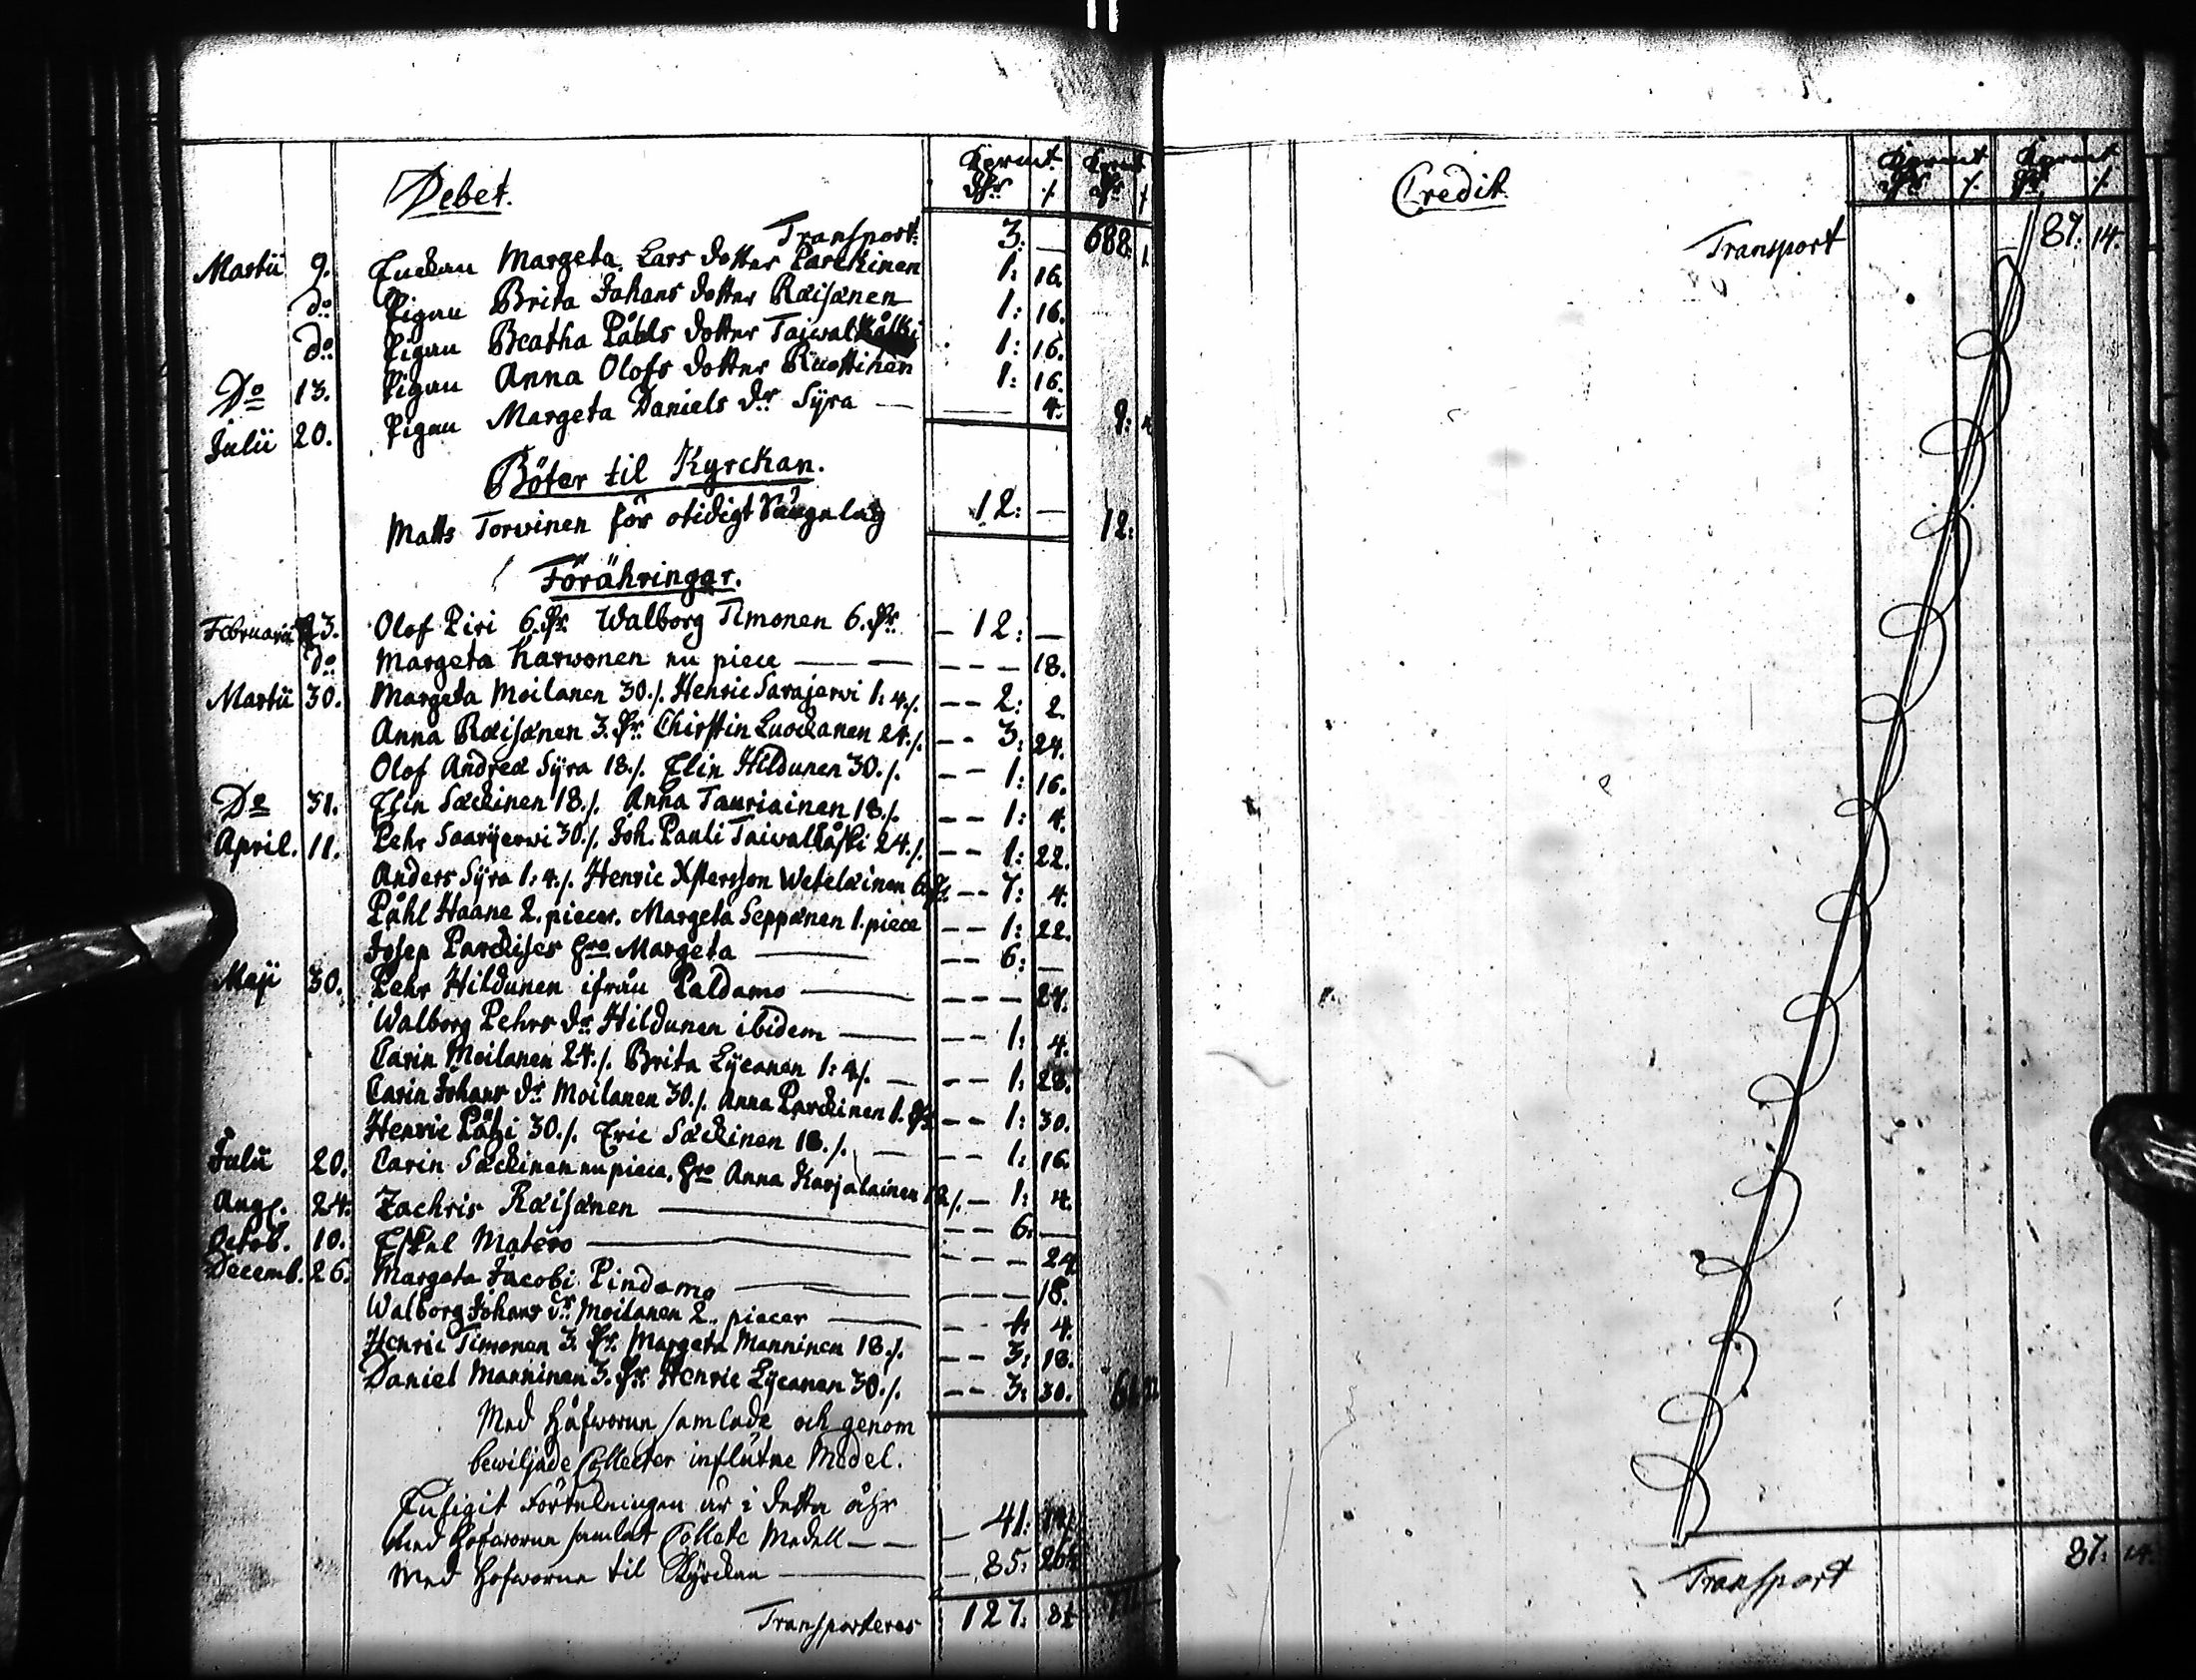 Debet.
Transport. 3. — 688. 1.
Martii 9. Enckan Margeta Lars dotter Parckinen 1: 16.
do Pigan Brita Johans dotter Räisänen 1: 16.
do Pigan Beatha Påhls dotter Taiwalkåski 1: 16.
Do 13. Pigan Anna Olofs dotter Ruottinen 1: 16.
Julii 20. Pigan Margeta Daniels dr Syra — 4. 9:
Böter til Kyrckan.
Matts Torvinen för otidigt Sängelag 12: — 12:
Förähringar.
Februarii 23. Olof Piri 6. dr. Walborg Timonen 6. dr. 12: —
do Margeta Karwonen en piece — — 18.
Martii 30. Margeta Moilanen 30./. Henric Sarajerwi 1: 4./. 2: 2.
Anna Räisänen 3. dr. Chirstin Luockanen 24./. 3: 24.
Olof Andreæ Syra 18./. Elin Hildunen 30./. 1: 16.
Do 31. Elin Säckinen 18./. Anna Tauriainen 18./. 1: 4.
April. 11. Pehr Saarijerwi 30./. Joh. Pauli Taiwalkåski 24./. 1: 22.
Anders Syra 1: 4./. Henric Xstersson Wetelainen 6 dr. 7: 4.
Påhl Haane 2. piecer. Margeta Seppänen 1. piece 1: 22.
Josep Parckises Margeta — 6: —
Maji 30. Pehr Hildunen ifrån Paldamo — 24.
Walborg Pehrs dr Hildunen ibidem — 1: 4.
Carin Moilanen 24./. Brita Lycanen 1: 4/. — 1: 28.
Carin Johans dr Moilanen 30./. Anna Parckinen 1. dr 1: 30.
Henric Pätzi 30./. Eric Säckinen 18./. — 1: 16.
Julii 20. Carin Säckinen en piece, Anna Karjalainen 18/. 1: 4.
Aug. 24. Zachris Räisänen — 6: —
Octob. 10. Eskel Matero — 24
Decemb. 26. Margeta Jacobi Pindamo — 18.
Walborg Johans dr Moilanen 2. piecer — 1: 4.
Henric Timonen 3. dr. Margeta Manninen 18./. 3: 18.
Daniel Manninen 3. dr. Henric Lycanen 30./. 3: 30.
Med Håfworne samlade och genom
bewiljade Collecter influtne Medel.
Ensigit Förtelningen är i detta åhr
med Hofworne samlat Collete Medell — 41:
Med Hofworne til Kyrckan — 85:
Transporteres 127:
Credit.
Transport 87: 14.
Transport 87: 14.